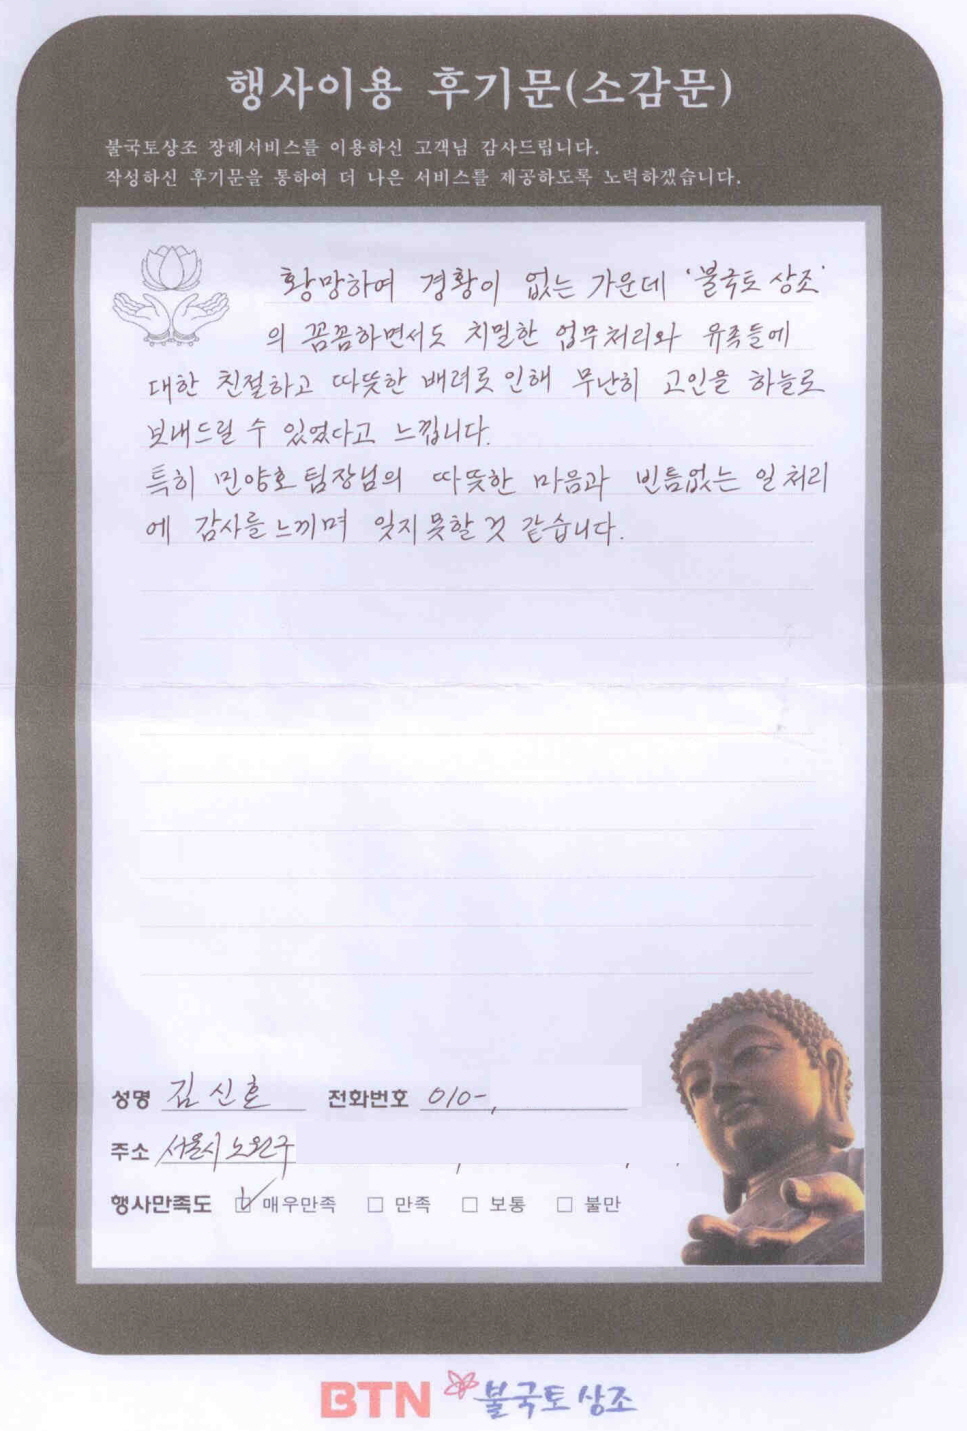 행사이용 후기문(소감문)
불국토상조 장례서비스를 이용하신 고객님 감사드립니다.
작성하신 후기문을 통하여 더 나은 서비스를 제공하도록 노력하겠습니다.
황망하여 경황이 없는 가운데 '불국토 상조'
의 꼼꼼하면서도 치밀한 업무처리와 유족들에
대한 친절하고 따뜻한 배려로 인해 무난히 고인을 하늘로
보내드릴 수 있었다고 느낍니다.
특히 민양호 팀장님의 따뜻한 마음과 빈틈없는 일 처리
에 감사를 느끼며 잊지 못할 것 같습니다.
성명 김신호 전화번호 010-
주소 서울시 노원구
행사만족도 ☑ 매우만족 □ 만족 □ 보통 □ 불만
BTN 불국토 상조